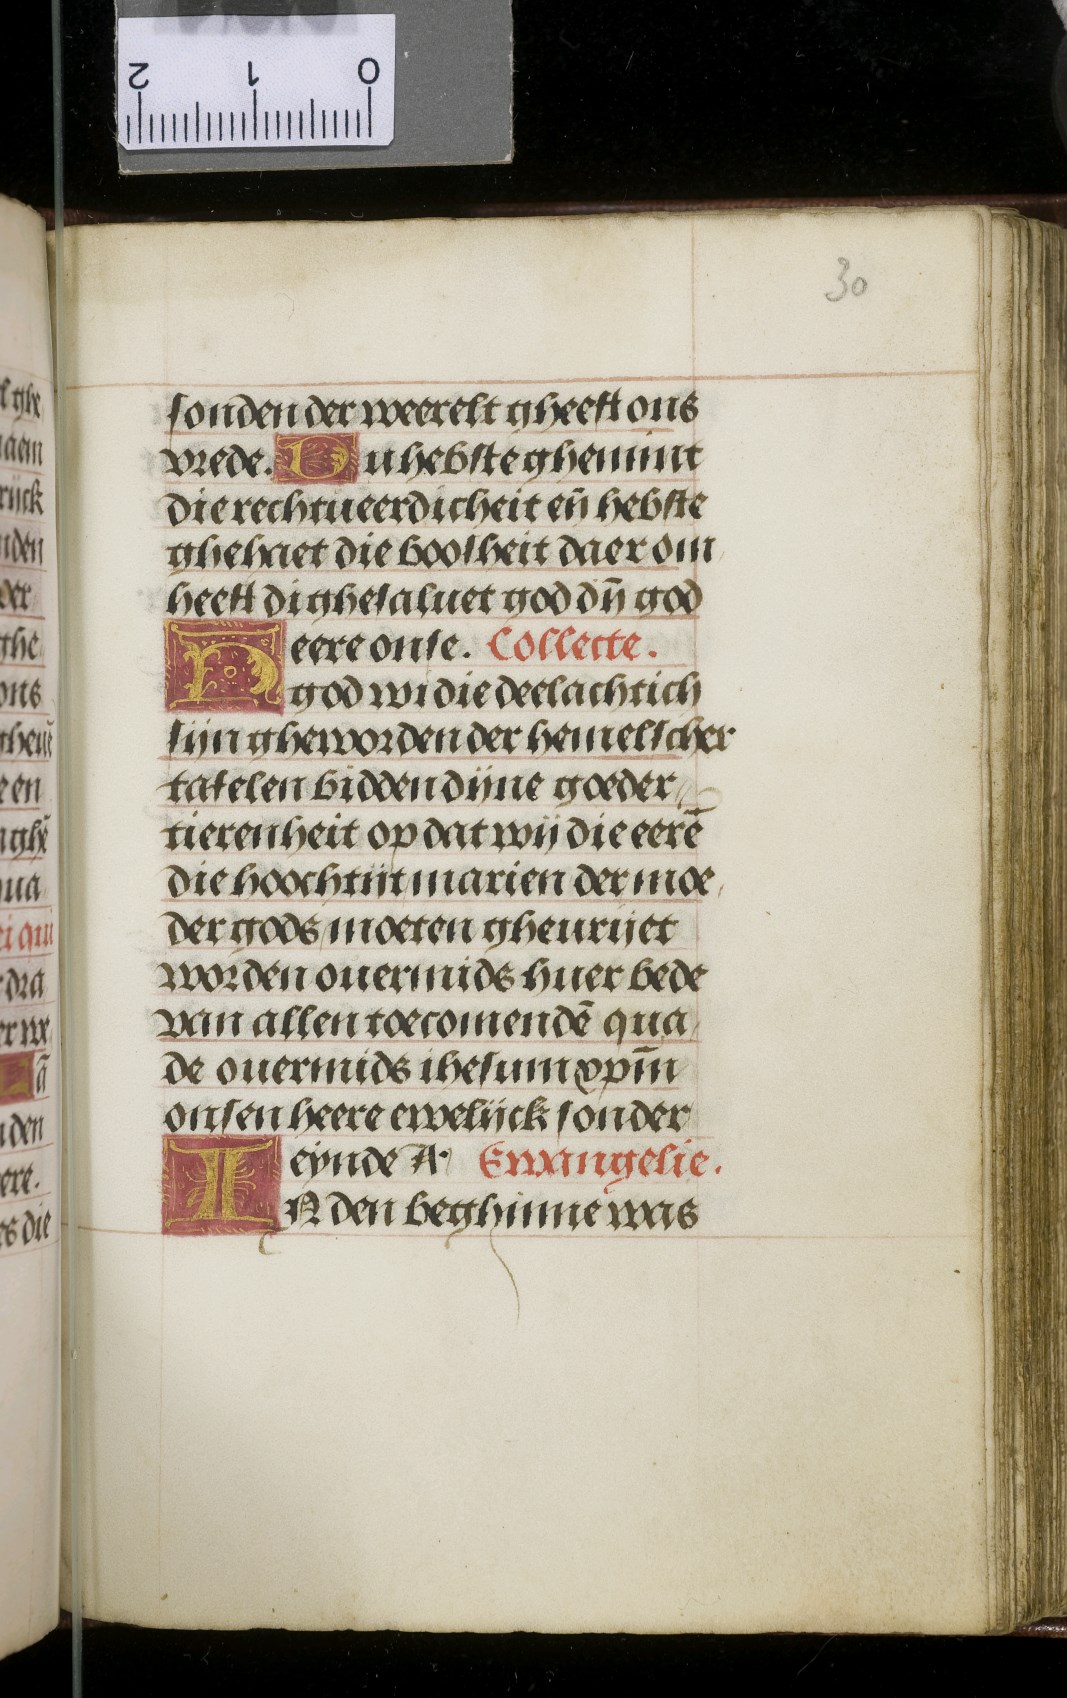 2 1 0
30
sonden der weerelt gheeft ons
vrede. Du hebste ghemint
die rechtueerdicheit eñ hebste
ghehaet die boosheit daer om
heeft di ghesaluet god dȳ god
eere onse. Collecte.
H god wi die deelachtich
sijn gheworden der hemelscher
tafelen bidden dijne goeder
tierenheit op dat wij die eerē
die hoochtijt marien der moe
der gods moeten gheurijet
worden ouermids huer bede
van allen toecomendē qua
de ouermids ihesum xp̄m
onsen heere ewelijck sonder
eynde A. Ewangelie.
IN den beghinne was